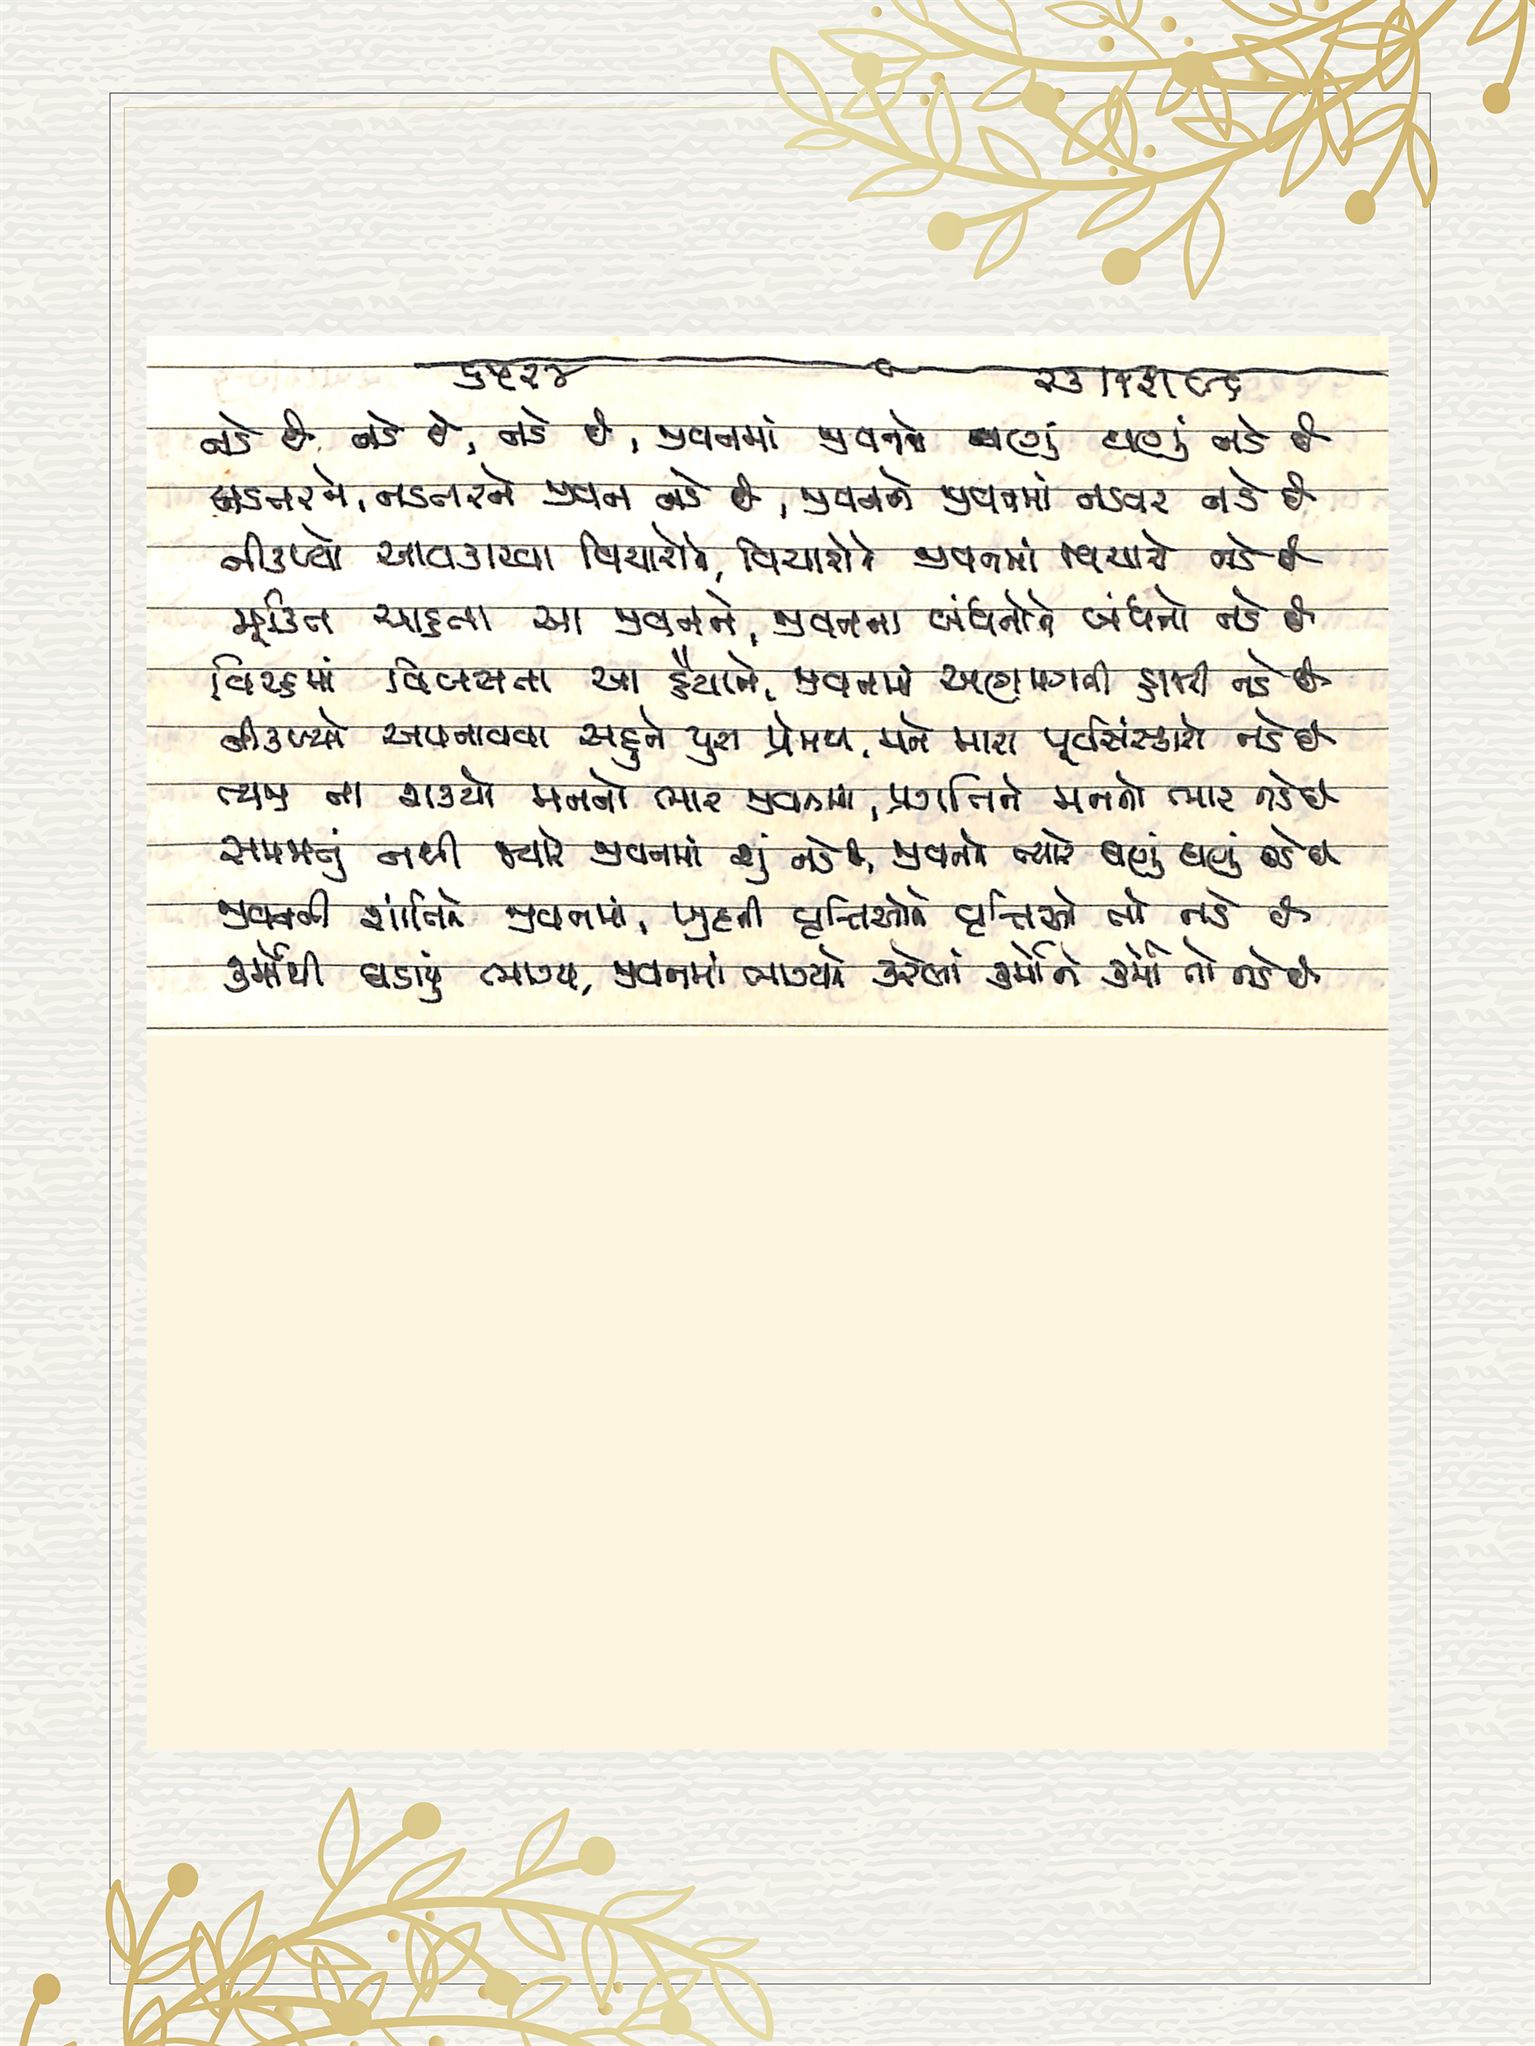 ૬૫૨૪ ૨૩।૧૨।૮૬
નડે છે નડે છે, નડે છે, જીવનમાં જીવનને ઘણું ઘણું નડે છે
નડતરને, નડતરને જીવન નડે છે, જીવનને જીવનમાં નડતર નડે છે
નીકળ્યો આવકારવા વિચારોને, વિચારોને જીવનમાં વિચારો નડે છે
મૂક્તિ ચાહતા આ જીવનને, જીવનના બંધનોને બંધનો નડે છે
વિરહમાં વિલસતા આ હૈયાને, જીવનમાં અણગમાની હાજરી નડે છે
નીકળ્યો અપનાવવા સહુને પુરા પ્રેમથી, મને મારા પૂર્વસંસ્કારો નડે છે
ત્યજી ના શક્યો મનનો ભાર જીવનમાં, પ્રગતિને મનનો ભાર નડે છે
સમજાતું નથી જ્યારે જીવનમાં શું નડે છે, જીવનને ત્યારે ઘણું ઘણું નડે છે
જીવનની શાંતિને જીવનમાં, ખુદની વૃત્તિઓને વૃત્તિઓ તો નડે છે
કર્મોથી ઘડાયું ભાગ્ય, જીવનમાં ભાગ્યને કરેલાં કર્મોને કર્મો તો નડે છે